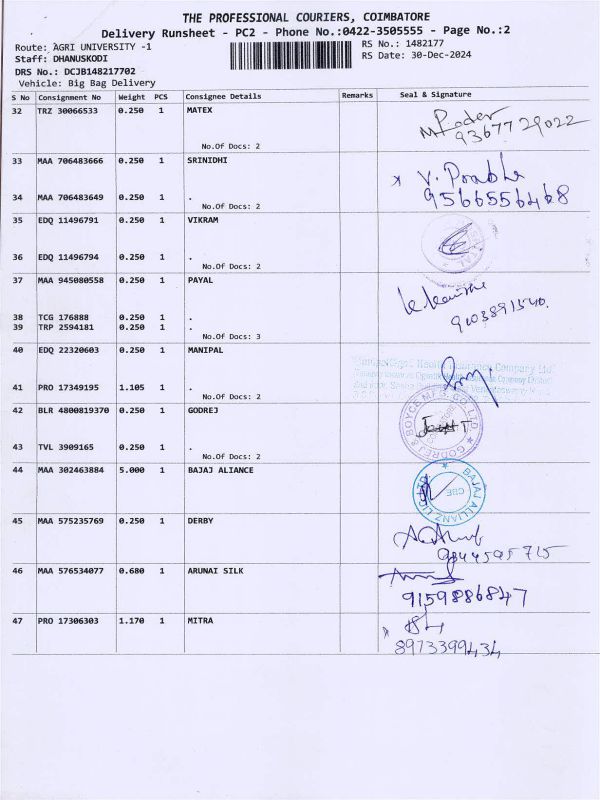 THE PROFESSIONAL COURIERS, COIMBATORE
Delivery Runsheet - PC2 - Phone No.:0422-3505555 - Page No.:2
Route: AGRI UNIVERSITY -1
RS No.: 1482177
Staff: DHANUSKODI
RS Date: 30-Dec-2024
DRS No.: DCJB148217702
Vehicle: Big Bag Delivery
S No Consignment No Weight PCS Consignee Details Remarks Seal & Signature
32 TRZ 30066533 0.250 1 MATEX
9367729022
No.Of Docs: 2
33 MAA 706483666 0.250 1 SRINIDHI
V. Prabha
34 MAA 706483649 0.250 1 .
9566556468
No.Of Docs: 2
35 EDQ 11496791 0.250 1 VIKRAM
36 EDQ 11496794 0.250 1 .
No.Of Docs: 2
37 MAA 945080558 0.250 1 PAYAL
38 TCG 176888 0.250 1 .
39 TRP 2594181 0.250 1 .
No.Of Docs: 3
40 EDQ 22320603 0.250 1 MANIPAL
Health Insurance Company Ltd
41 PRO 17349195 1.105 1 .
No.Of Docs: 2
42 BLR 4800819370 0.250 1 GODREJ
GODREJ & BOYCE MFG. CO. LTD.
43 TVL 3909165 0.250 1 .
No.Of Docs: 2
44 MAA 302463884 5.000 1 BAJAJ ALIANCE
BAJAJ ALLIANZ LIC LTD
CBE
45 MAA 575235769 0.250 1 DERBY
9844595715
46 MAA 576534077 0.680 1 ARUNAI SILK
9159886847
47 PRO 17306303 1.170 1 MITRA
8973399434